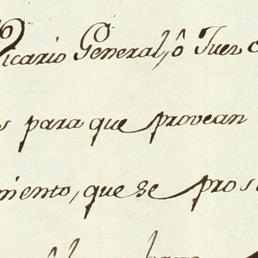 Vicario General, ô Juez
s para que provean
miento, que se pros